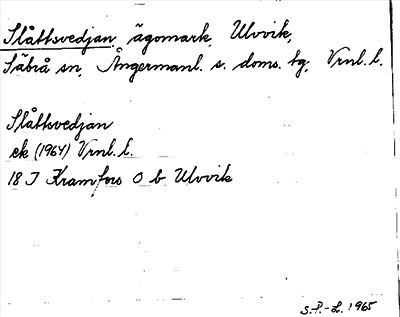 Slåttsvedjan, ägomark, Ulvvik,
Säbrå sn, Ångermanl. s. doms. tg, Vrnl. l.
Slåttsvedjan
ek (1964) Vrnl. l.
18 I Kramfors O b Ulvvik
S.P.-L. 1965